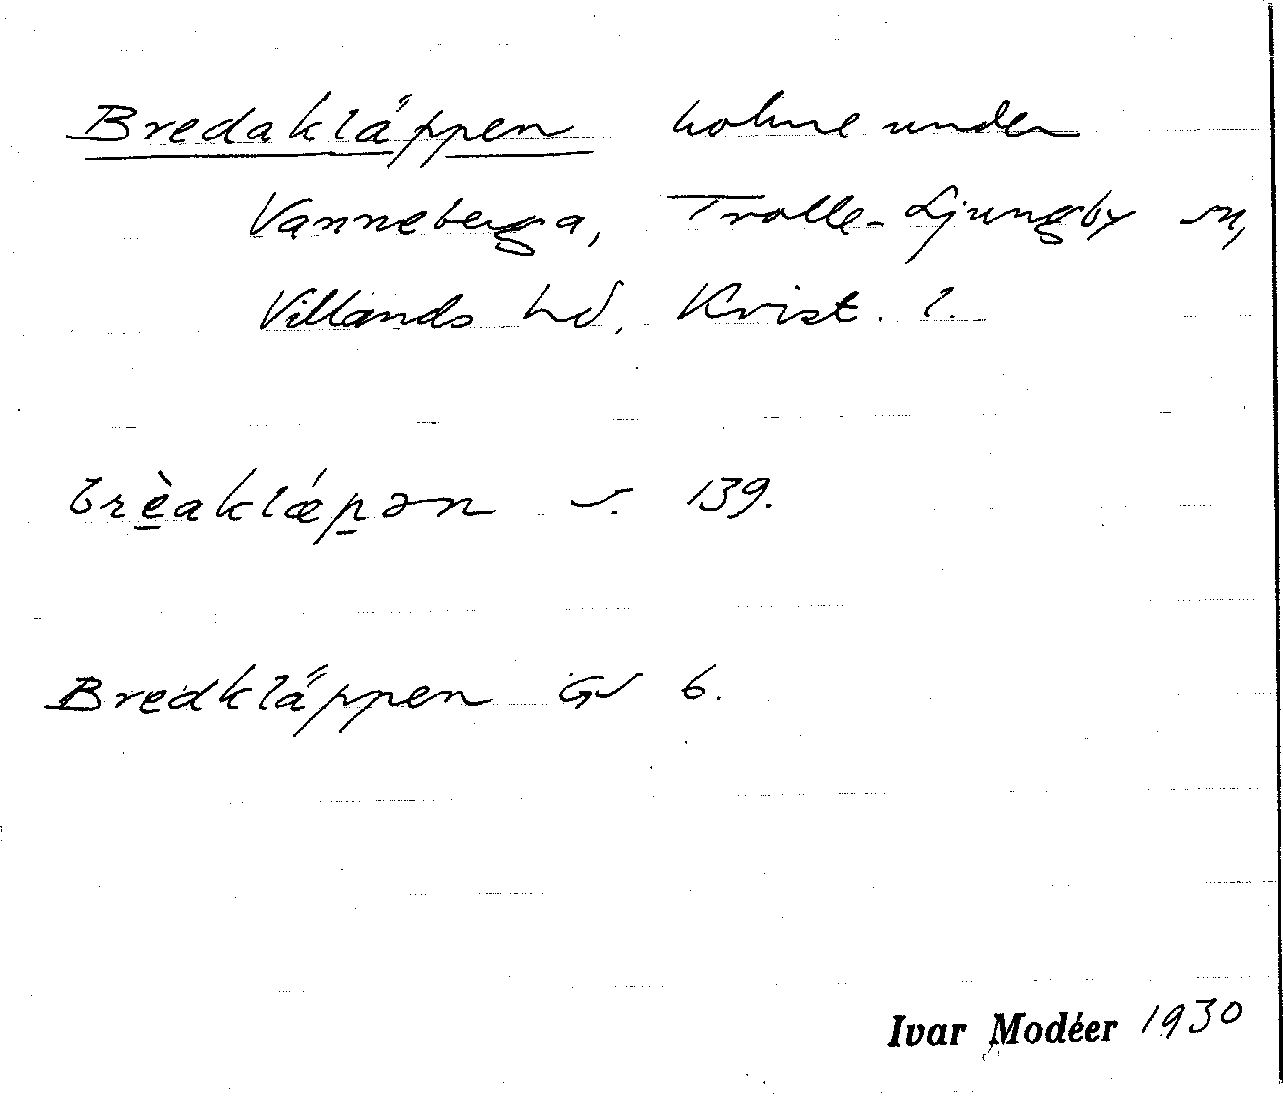 Bredakläppen holme under
Vanneberga, Trolle-Ljungby sn,
Villands hd, Krist. l.
brèaklǽpən s. 139.
Bredkläppen GS 6.
Ivar Modéer 1930